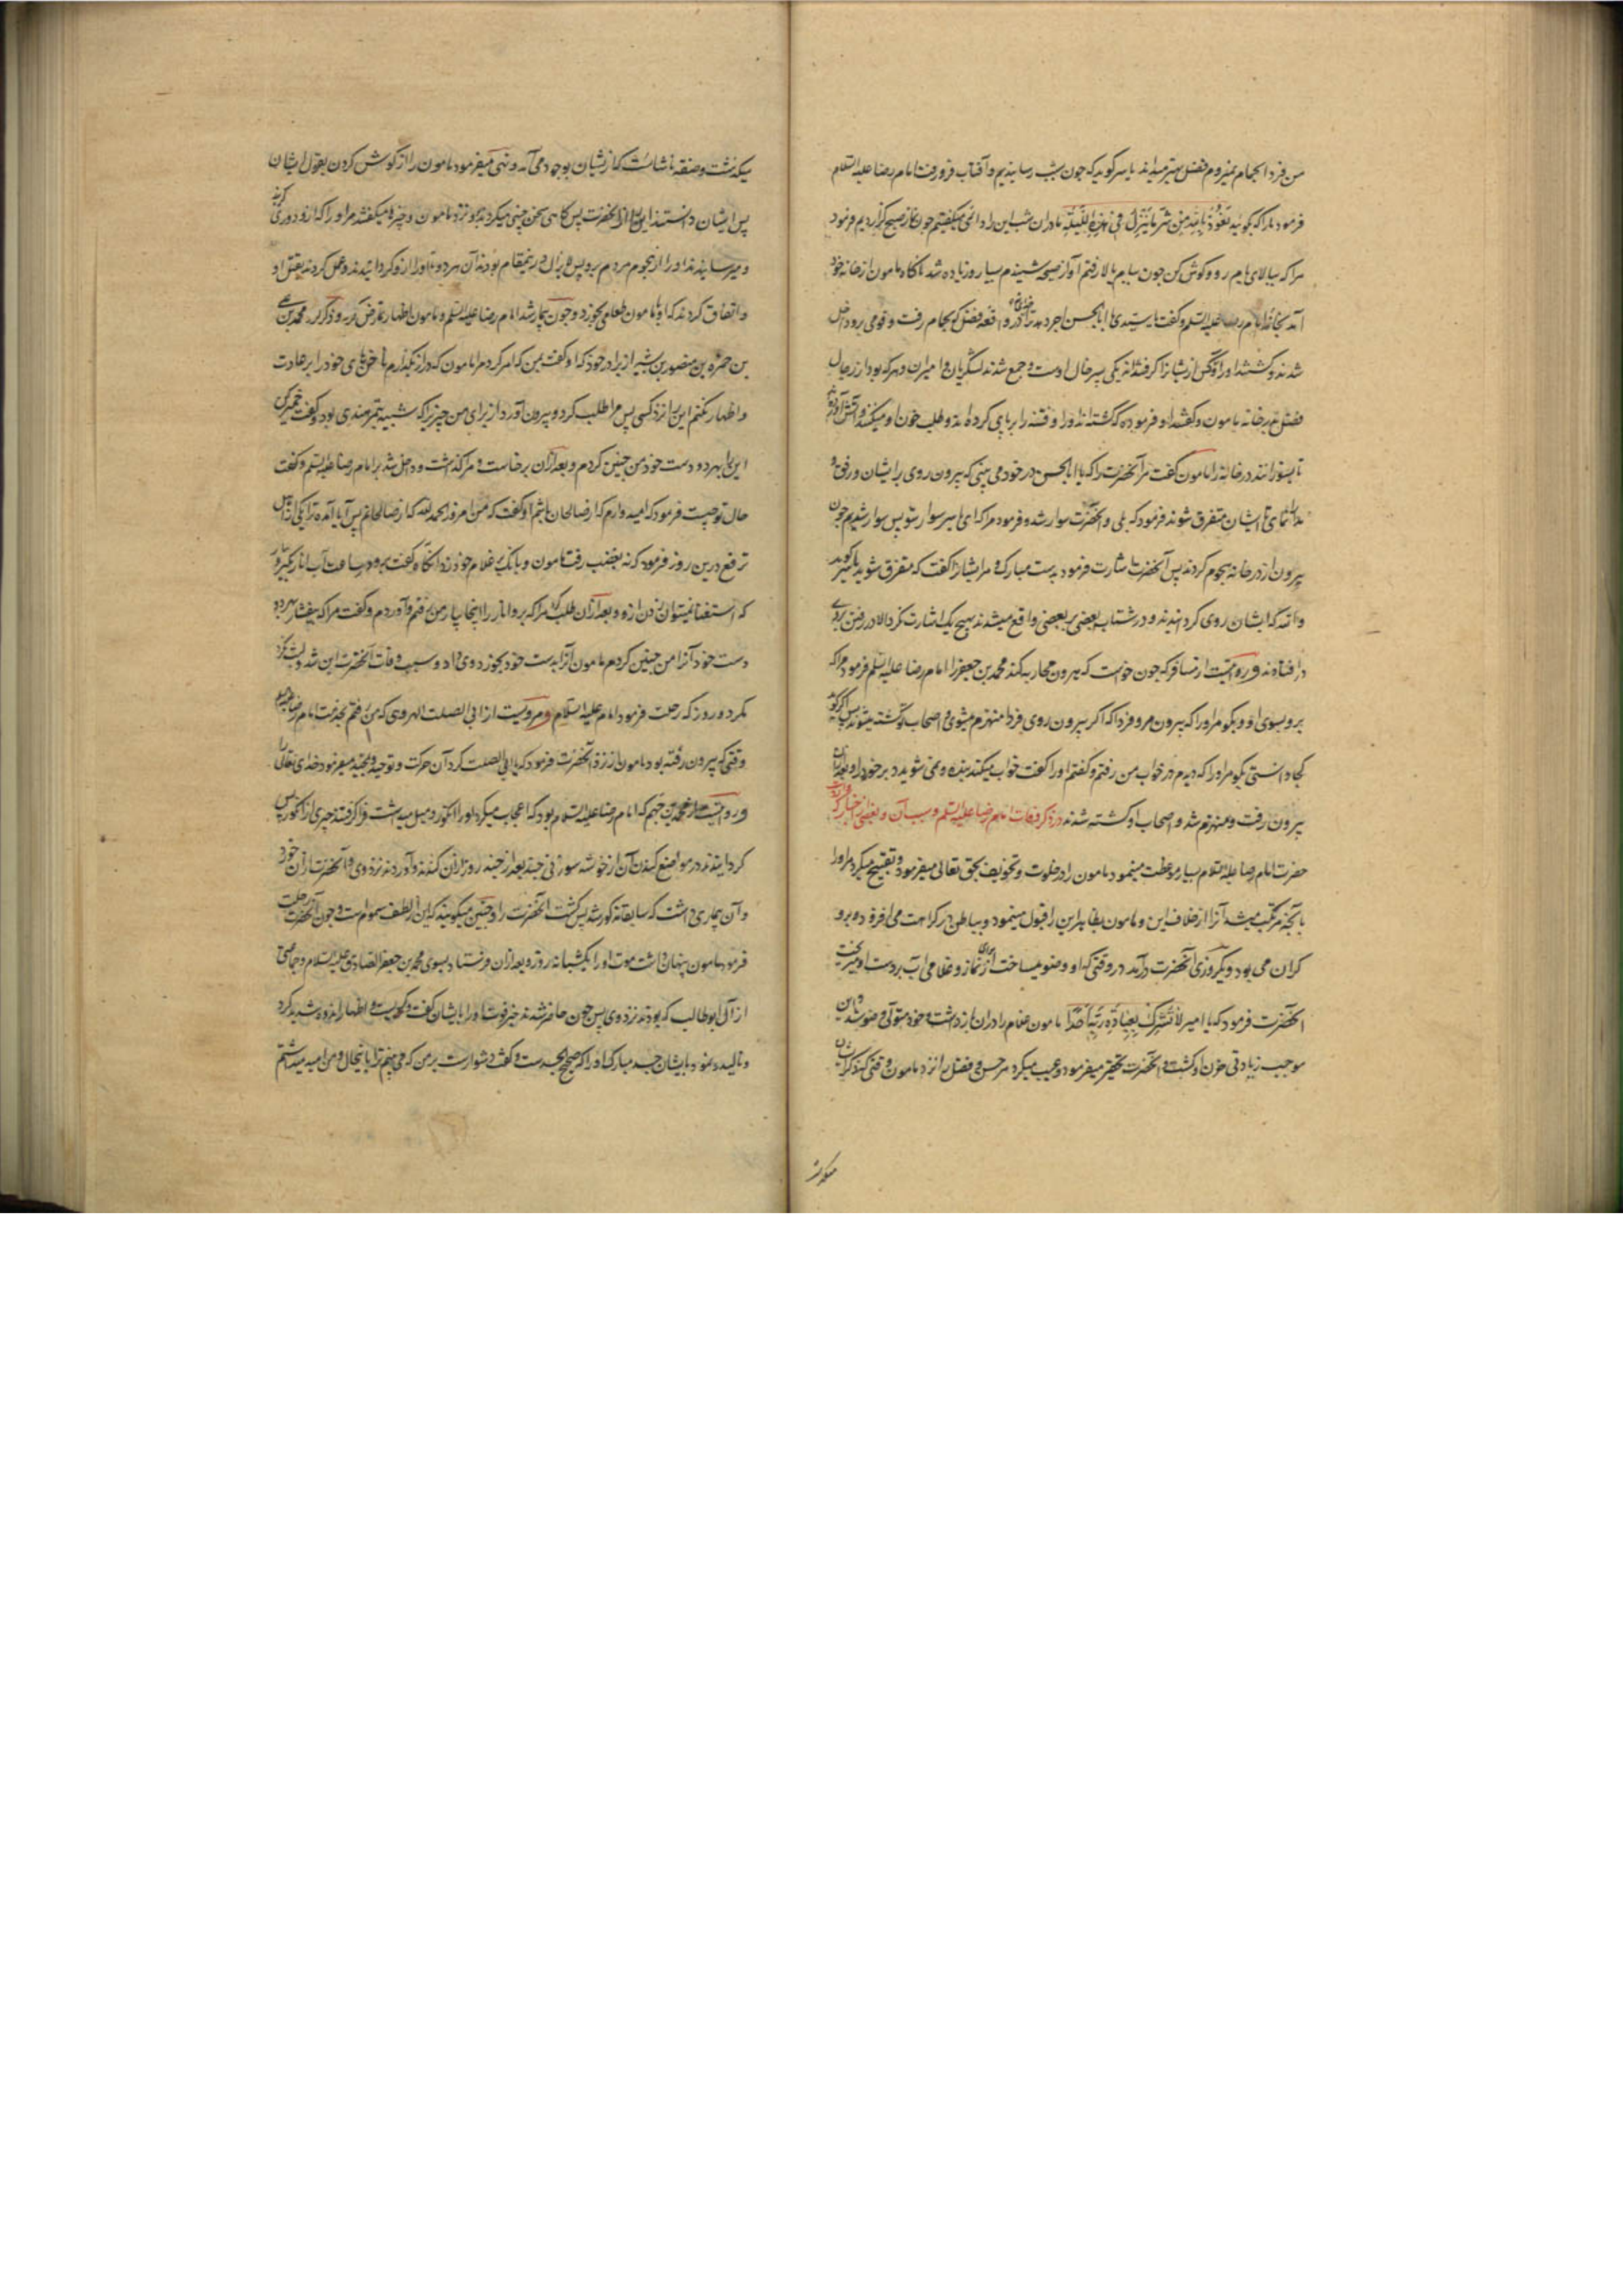 من فردا بحمام نمیروم و فضل بهتر میداند یاسر گوید که چون بشب رسانیدیم و آفتاب فرو رفت امام رضا علیه السلام
فرمود ما را که بگوئید نعوذ بالله من شر ما ینزل فی هذه اللیلة ما در ان شب این را دائمی میگفتیم چون نماز صبح گزاردیم فرمود
مرا که ببالای بام رو و گوش کن چون ببام بالا رفتم آواز صیحه شنیدم بسیار و زیاده شد ناگاه مامون از خانه خود
آمد بخانه امام رضا علیه السلم و گفت یا سیدی یا ابا الحسن اجرد هد ترا خدای در واقعه فضل که بحمام رفت و قومی برو داخل
شدند و کشتند او را و کس از یشان را گرفته اند یکی پسر خال اوست و جمع شدند لشکریان و امیران و هر که بود از رجال
فضل بدر خانه مامون و گفتند او فرموده که کشته اند او را و فتنه را بر پای کرده اند و طلب خون او میکنند و آتش آورده
تا بسوزانند در خانه را مامون گفت مر آنحضرت را که یا ابا الحسن در خود می بینی که بیرون روی برایشان و رفق و
مدارا نمای تا ایشان متفرق شوند فرمود که بلی و آنحضرت سوار شد و فرمود مرا که ای یاسر سوار شو پس سوار شدیم چون
بیرون از در خانه هجوم کردند پس آنحضرت اشارت فرمود بدست مبارک و مر ایشان را گفت که متفرق شوید یاسر گوید
والله که ایشان روی گردانیدند و در شتاب بعضی بر بعضی واقع میشدند بهیچ یک اشارت نکرد الا در رفتن بر وی
در افتادند و رویتست از مسافر که چون خواست که بیرون محاربه کند محمد بن جعفر را امام رضا علیه السلم فرمود مرا که
برو بسوی او و بگو مر او را که بیرون مرو فردا که اگر بیرون روی فردا منهزم میشوی و اصحاب تو کشته میشوند پس اگر گوید
کجا دانستی بگو مر او را که دیدم در خواب من رفتم و گفتم او را گفت خواب میکند بنده و نمی شوید دبر خود را و بعد از ان
بیرون رفت و منهزم شد و اصحاب او کشته شدند در ذکر وفات امام رضا علیه السلم و سبب آن و بعضی اخبار که
حضرت امام رضا علیه السلام بسیار موعظت مینمود مامون را در خلوت و تخویف بحق تعالی میفرمود و تقبیح میکرد مر او را
بآنچه مرتکب میشد آنرا از خلاف این و مامون بظاهر این را قبول مینمود و بباطن در کراهت می افزود و برو
گران می بود و یکروزی آنحضرت درآمد در وقتی که او وضو میساخت از برای نماز و غلامی آب بر دست او میریخت
آنحضرت فرمود که یا امیر لا تشرک بعبادة ربک احدا مامون غلام را دران باز داشت و خود متولی وضو شد و این
موجب زیادتی حزن او گشت و آنحضرت تحقیر میفرمود و عیب میکرد مر حسن و فضل را نزد مامون وقتی که ذکر ایشان
میگذشت
میگذشت و صفت ناشایست که از یشان بوجود می آمد و نهی میفرمود مامون را از گوش کردن بقول ایشان
پس ایشان دانستند این را از آنحضرت پس گاهی سخن چینی میکردند برو نزد مامون و چیزها میگفتند مر او را که ازو دوری کند
و میرسانیدند او را از هجوم مردم برو پس لا یزال درین مقام بودند آن هر دو تا او را ازو گردانیدند و عمل کردند بقتل او
و اتفاق کردند که او با مامون طعامی بخورد و چون بیمار شد امام رضا علیه السلم و مامون اظهار تمارض کرد و ذکر کرده محمد بن علی
بن حمزه بن منصور بن بشیر از برادر خود که او گفت بمن که امر کرد مرا مامون که دراز بگذارم ناخنهای خود را بر عادت
و اظهار نکنم این را نزد کسی پس مرا طلب کرد و بیرون آورد از برای من چیزی را که شبیه بتمر هندی بود و گفت خمیر کن
این را بهر دو دست خود من چنین کردم و بعد از آن برخاست و مرا گذاشت و داخل شد بر امام رضا علیه السلم و گفت
حال تو چیست فرمود که امید وارم که از صالحان باشم او گفت که من امروز بحمد الله که از صالحانم پس آیا آمده ترا یکی از اهل
ترفع درین روز فرمود که نه بغضب رفت مامون و بانگ بر غلام خود زد انگاه گفت برو و ساعت آب انار بگیر و بیار
که استغنا نمیتوان نزدن ازو و بعد از آن طلب کرد مرا که برو انار را اینجا بیار من رفتم و آوردم و گفت مرا که بیفشار بهر دو
دست خود آنرا من چنین کردم مامون آنرا بدست خود بخورد وی داد و سبب وفات آنحضرت این شد و لبث نکرد
مگر دو روز که رحلت فرمود امام علیه السلام و مرویست از ابی الصلت الهروی که من رفتم بخدمت امام رضا علیه السلم
وقتی که بیرون رفته بود مامون از نزد آنحضرت فرمود که یا ابی الصلت کرد آن حرکت و توحید و تمجید میفرمود خدای تعالی را
و رویتست از محمد بن جهم که امام رضا علیه السلام بود که اعجاب میکرد او را انگور و میل میداشت فرا گرفتند چیزی از انگور پس
گردانیدند در مواضع کندن آن از خوشه سوزنی چند بعد از چند روز ازان کندند و آوردند نزد وی و آنحضرت از ان خورد
و آن بیماری داشت که سابقا مذکور شد پس کشت آنحضرت را و چنین میگویند که این الطف سموم است و چون آنحضرت رحلت
فرمود مامون پنهان داشت موت او را یکشبانه روز و بعد ازان فرستاد بسوی محمد بن جعفر الصادق علیه السلام و جماعتی
از آل ابوطالب که بودند نزد وی پس چون حاضر شدند خبر فوت او را بایشان گفت و گریست و اظهار اندوه شدید کرد
و نمود بایشان جسد مبارک او را که صحیح الجسد است و گفت دشوارست بر من که می بینم ترا باینحال و من امید میداشتم